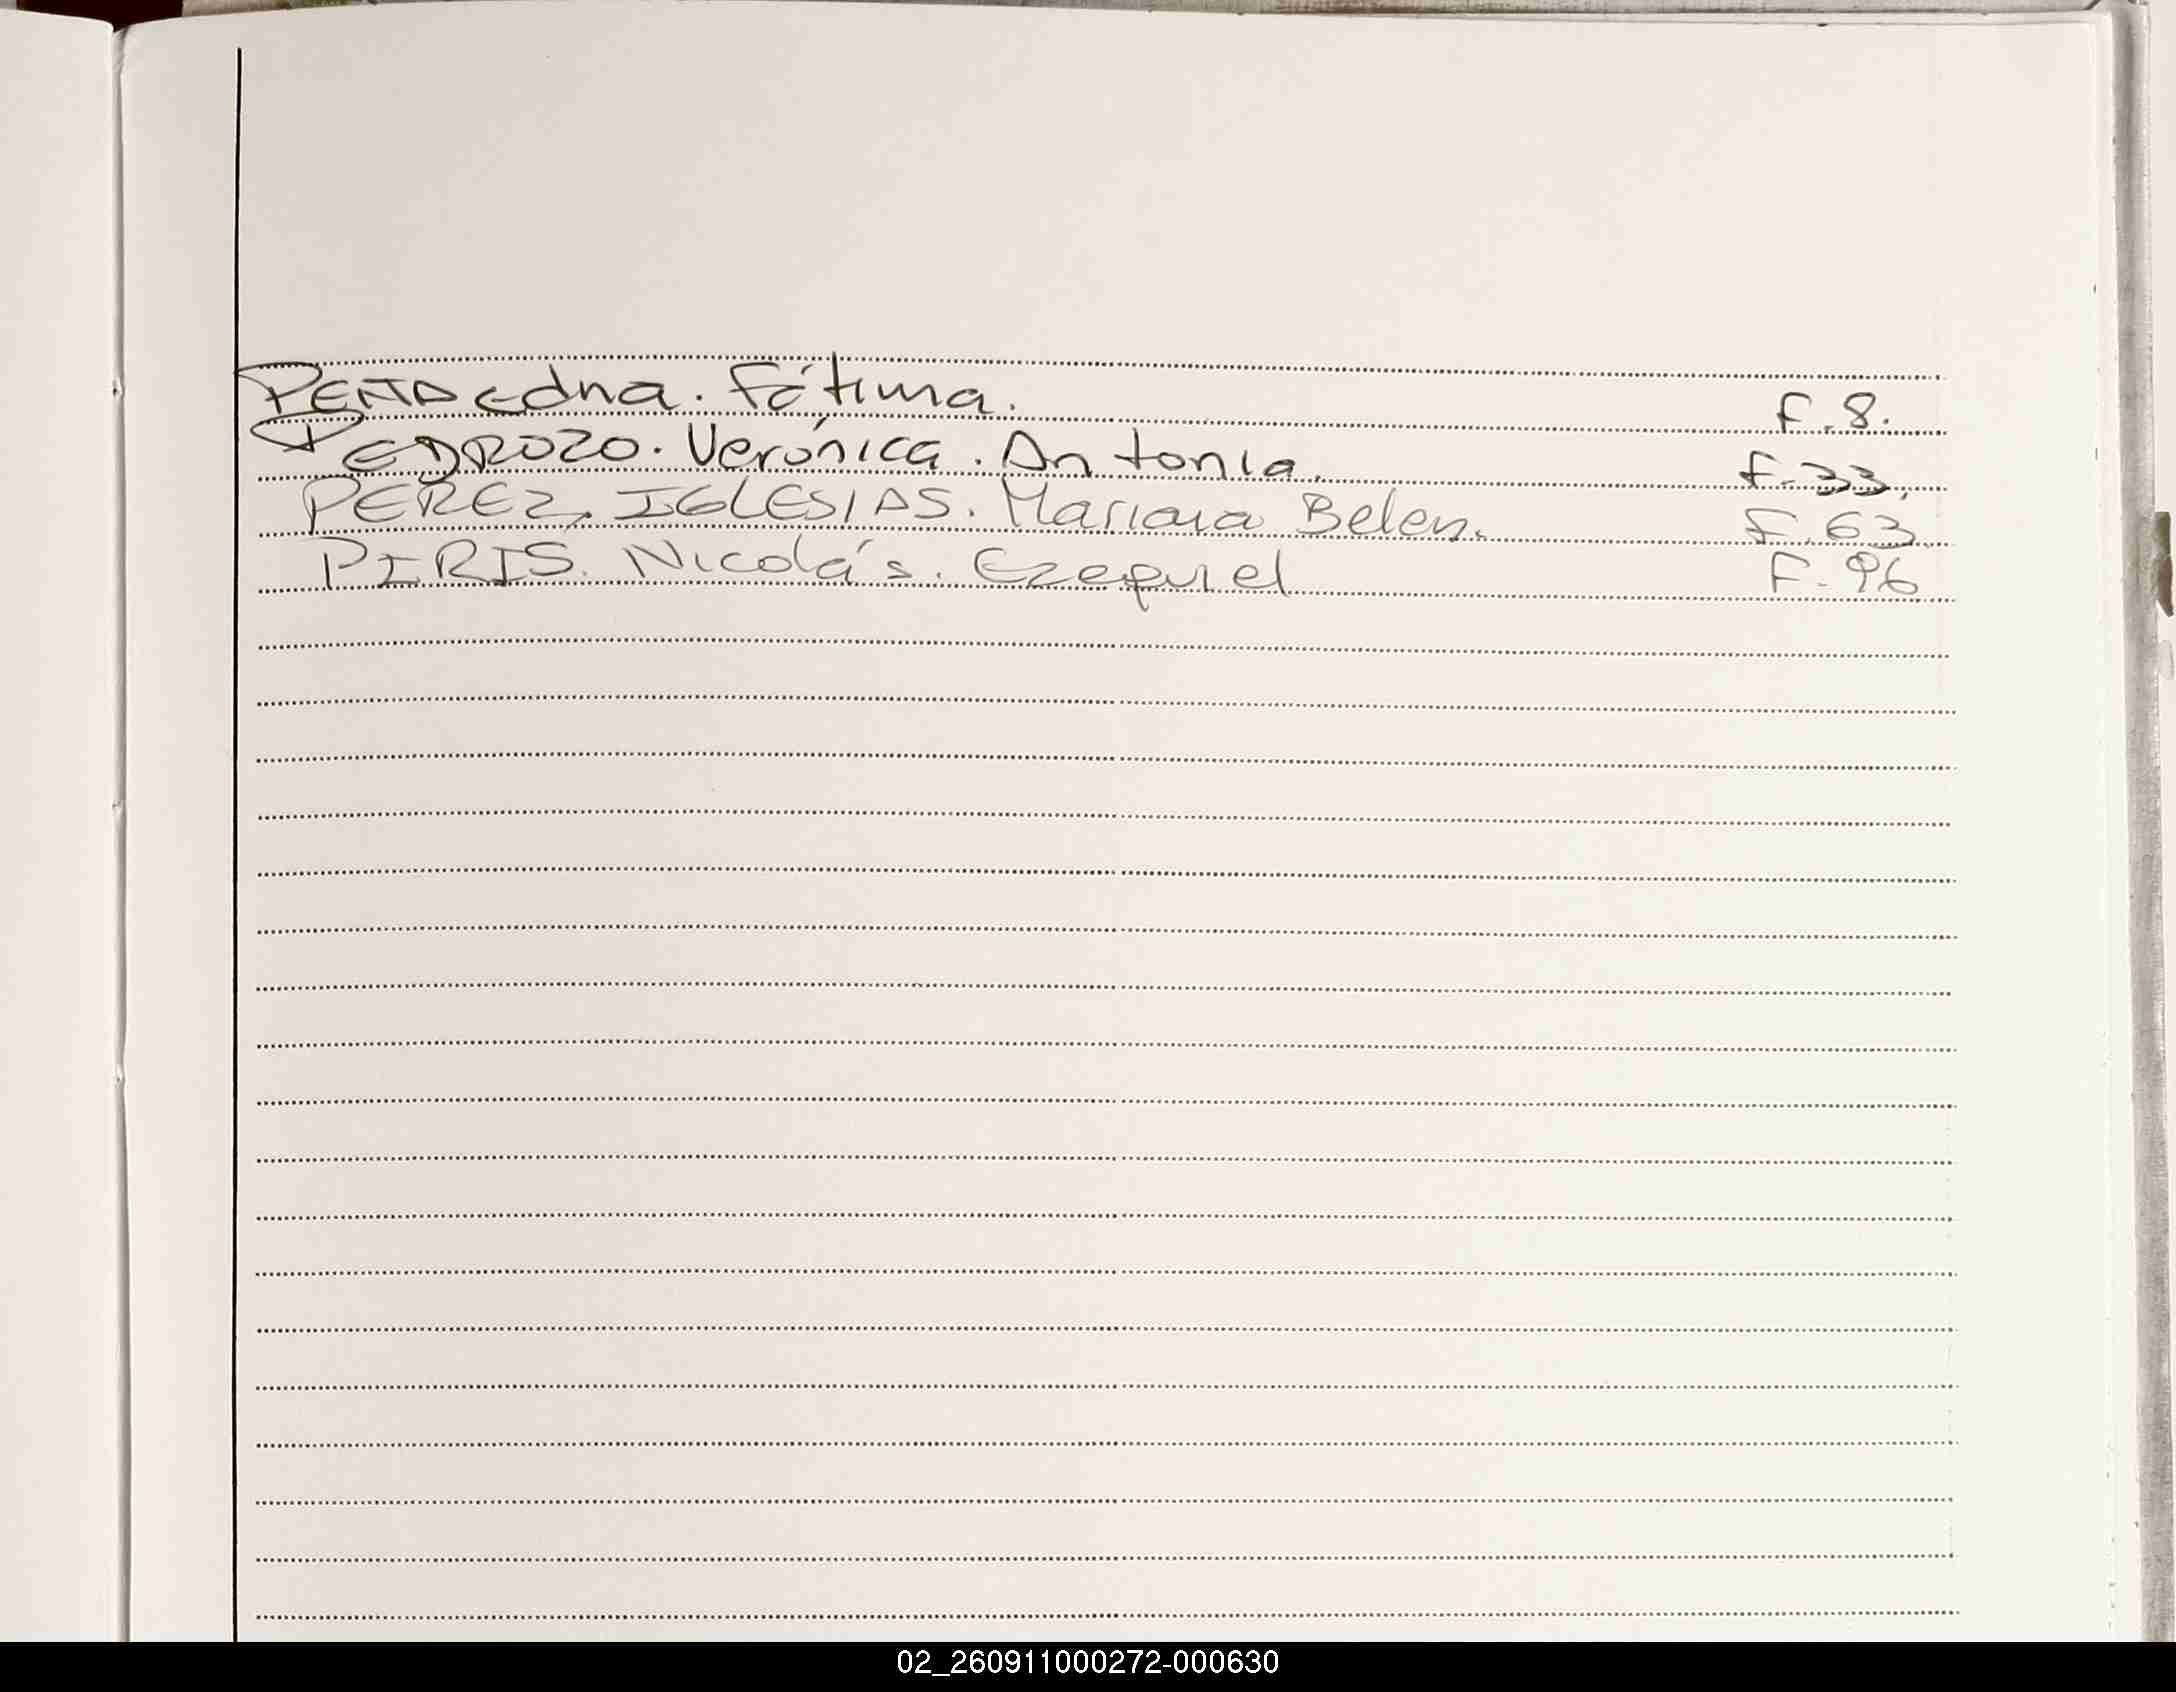 PEÑA Edna. Fátima. F.8.
PEDROZO. Verónica. Antonia. F.33.
PEREZ. IGLESIAS. Mariana Belen. F.63
PIRIS. Nicolás. Ezequiel F.96
02_260911000272-000630